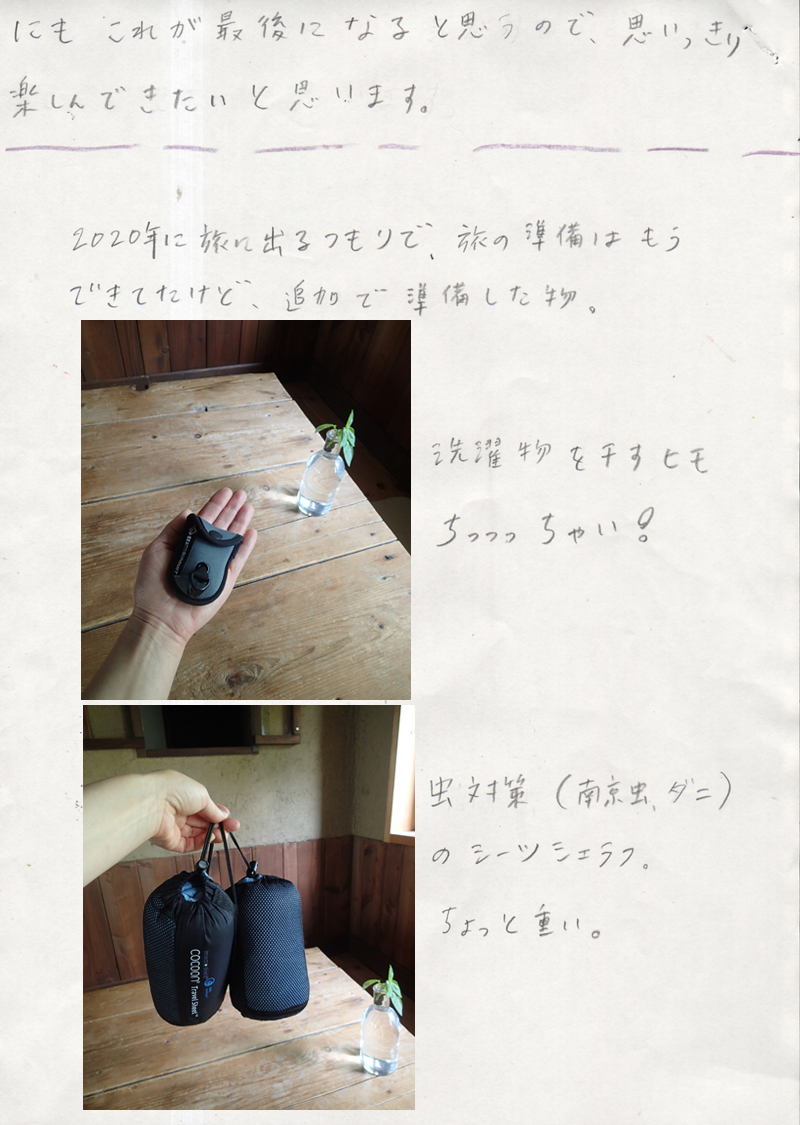 にも これが最後になると思うので、思いっきり
楽しんできたいと思います。
2020年に旅に出るつもりで、旅の準備はもう
できてたけど、追加で準備した物。
洗濯物を干すヒモ
ちっっっちゃい!
虫対策（南京虫、ダニ）
のシーツシュラフ。
ちょっと重い。
COCOON Travel Sheet